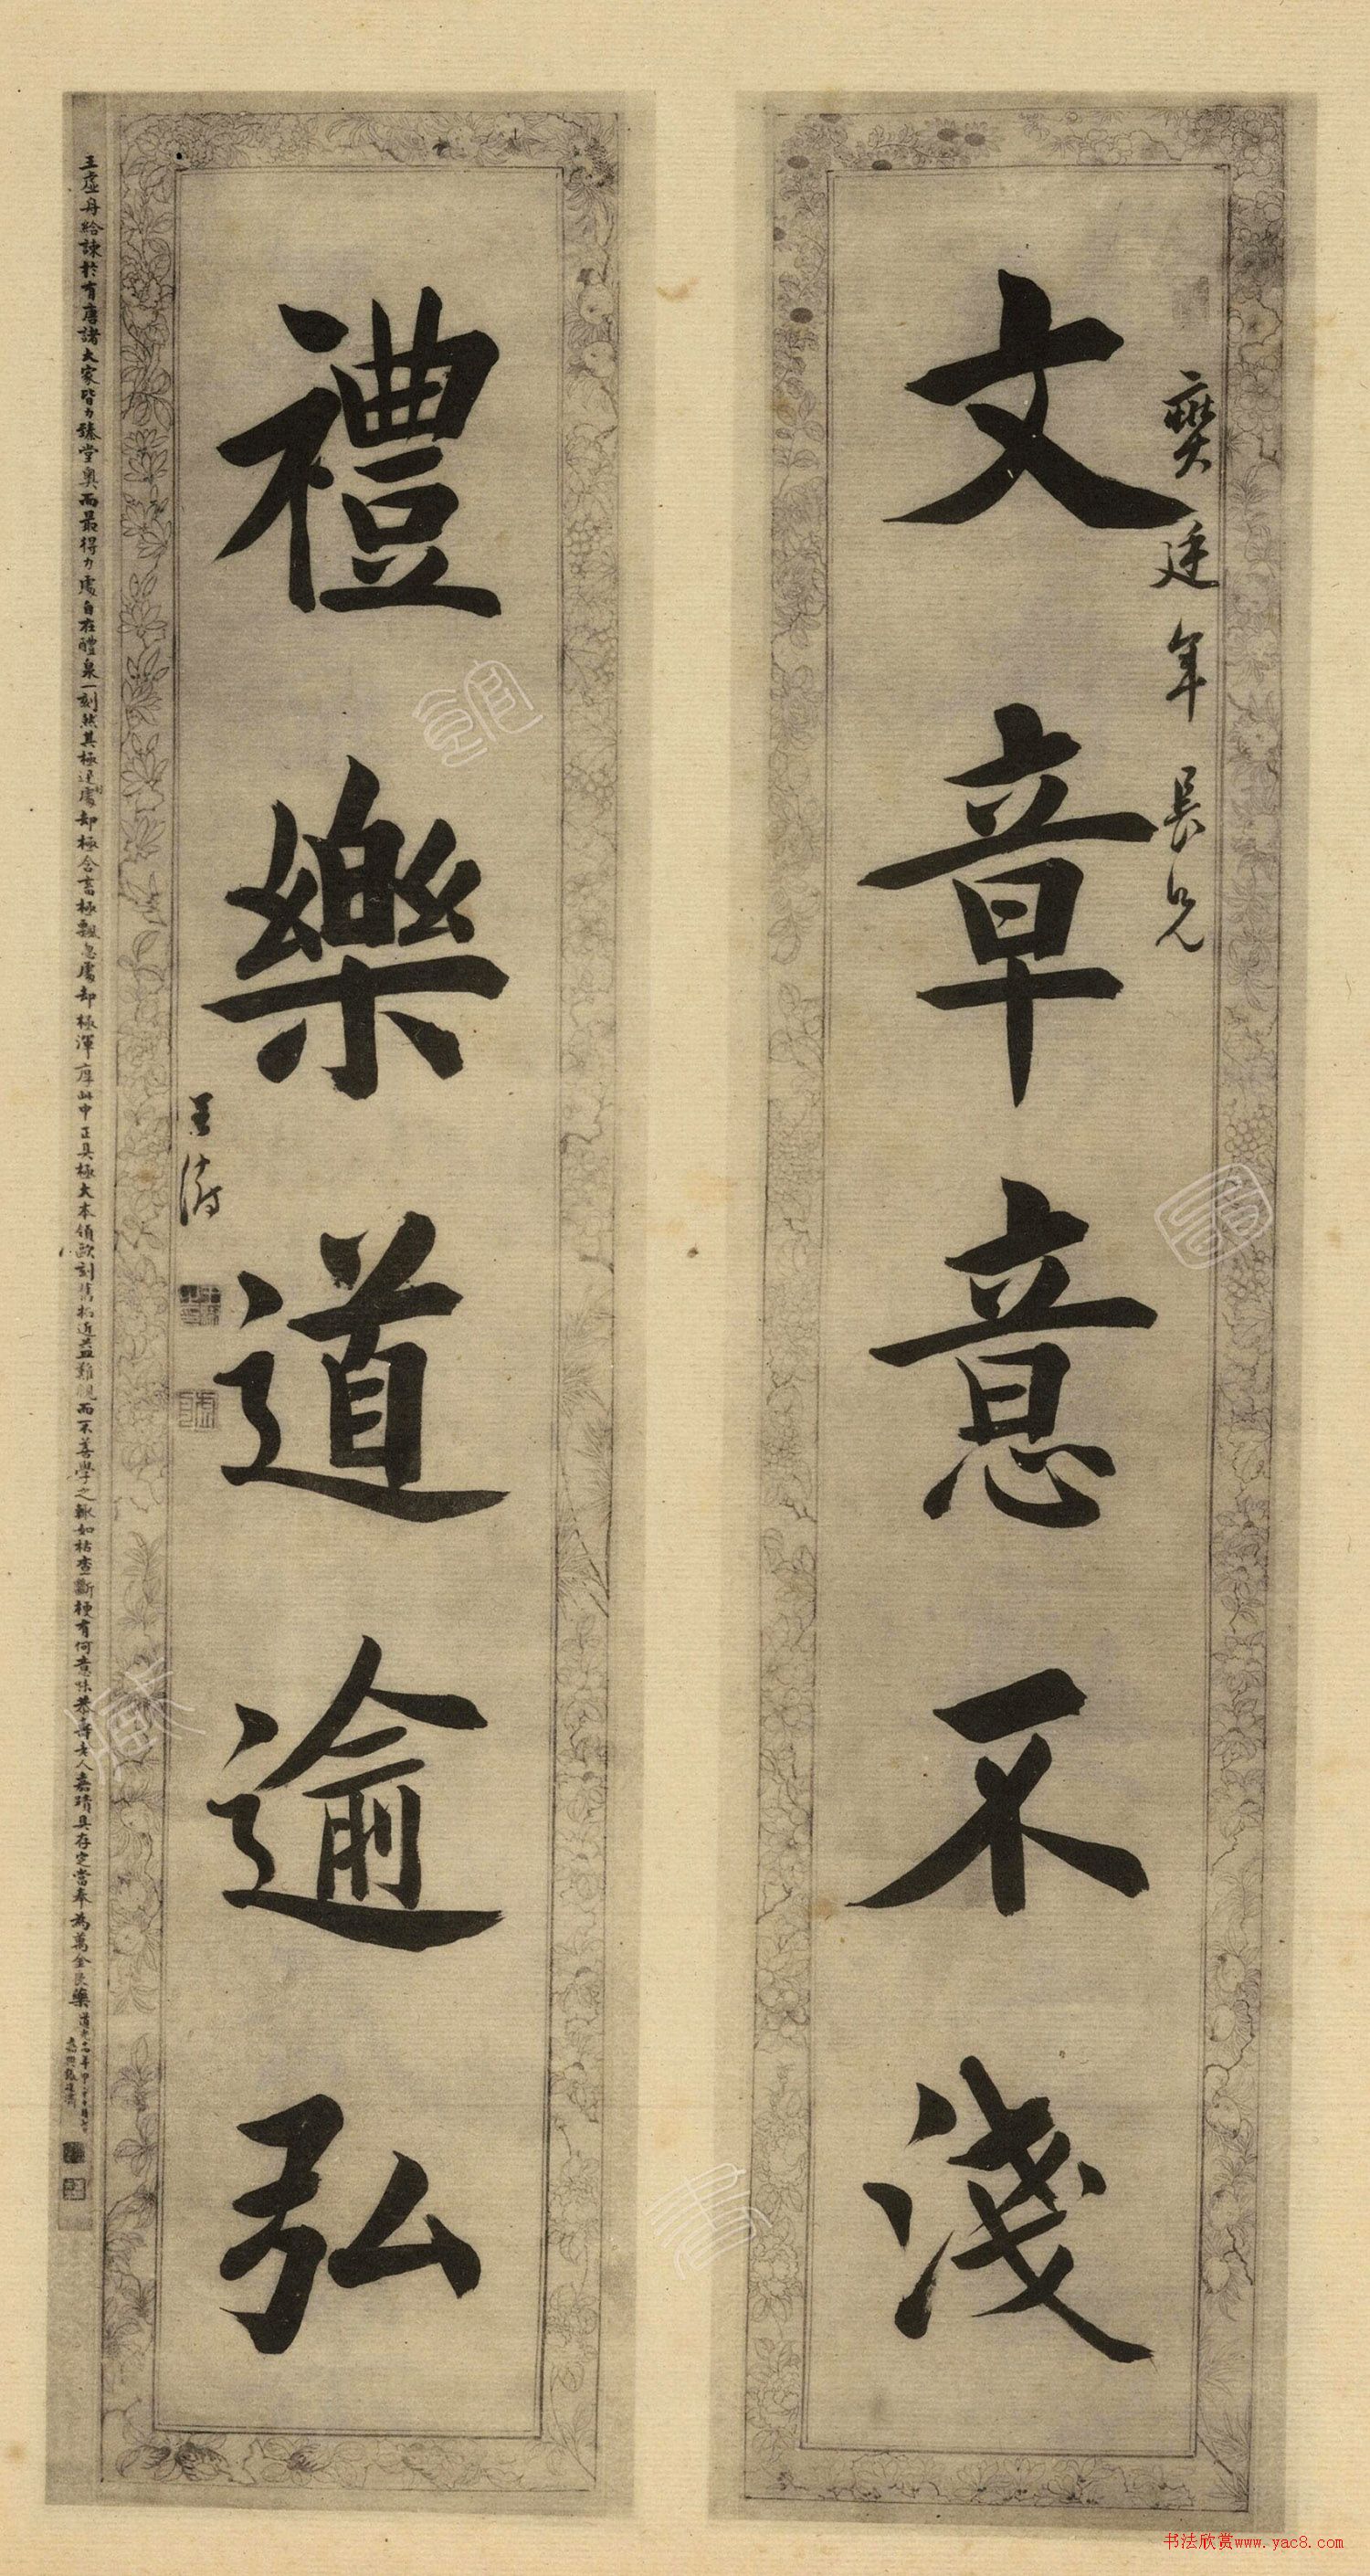 樊廷年長兄
文章意不淺
禮樂道逾弘
王澍
王虛舟給諫於有唐諸大家皆力臻堂奧而最得力處自在醴泉一刻然其極逞處却極含蓄極飄忽處却極渾厚此中正具極大本領歐刻舊拓近益難覯而不善學之輒如枯查斷梗有何意味恭壽老人嘉蹟具存定當奉為萬金良藥
書法欣賞www.yac8.com